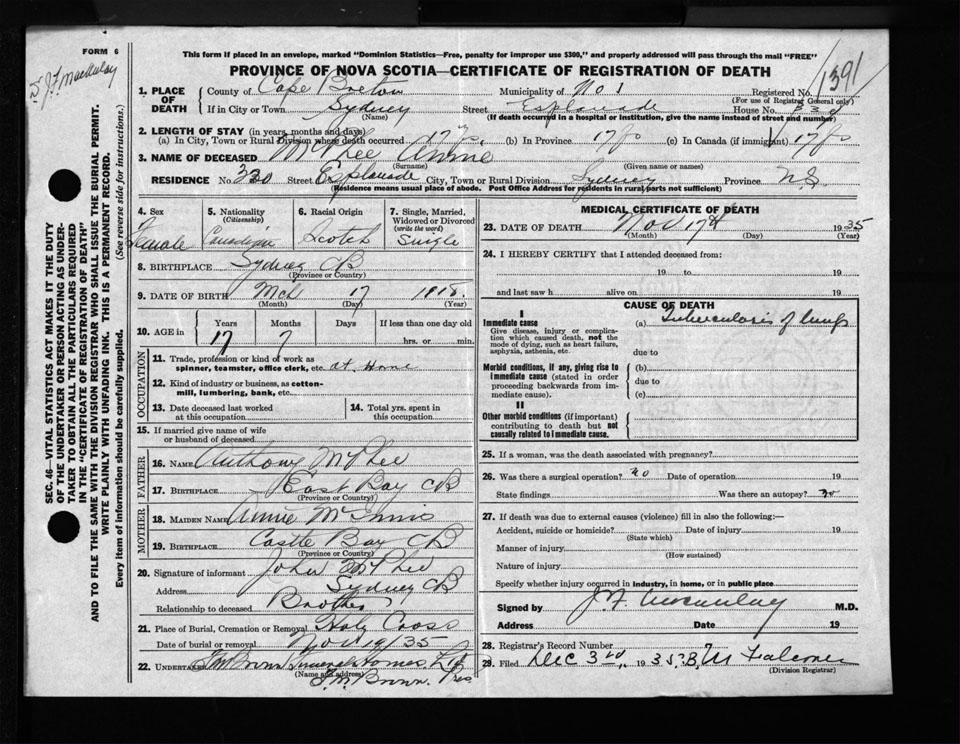 FORM 6
This form if placed in an envelope, marked "Dominion Statistics—Free, penalty for improper use $300," and properly addressed will pass through the mail "FREE"
PROVINCE OF NOVA SCOTIA—CERTIFICATE OF REGISTRATION OF DEATH
1391
J F MacAulay
SEC. 46—VITAL STATISTICS ACT MAKES IT THE DUTY
OF THE UNDERTAKER OR PERSON ACTING AS UNDER-
TAKER TO OBTAIN ALL THE PARTICULARS REQUIRED
IN THE "CERTIFICATE OF REGISTRATION OF DEATH"
AND TO FILE THE SAME WITH THE DIVISION REGISTRAR WHO SHALL ISSUE THE BURIAL PERMIT.
WRITE PLAINLY WITH UNFADING INK. THIS IS A PERMANENT RECORD.
Every item of information should be carefully supplied. (See reverse side for instructions.)
1. PLACE OF DEATH
County of Cape Breton Municipality of No 1 Registered No.
(For use of Registrar General only)
If in City or Town Sydney Street Esplanade House No.
(Name) (If death occurred in a hospital or institution, give the name instead of street and number)
2. LENGTH OF STAY (in years, months and days)
(a) In City, Town or Rural Division where death occurred 17 yrs. (b) In Province 17 yrs (c) In Canada (if immigrant) 17 yrs
3. NAME OF DECEASED McPhee Annie
(Surname) (Given name or names)
RESIDENCE No. 330 Street Esplanade City, Town or Rural Division Sydney Province N.S.
(Residence means usual place of abode. Post Office Address for residents in rural parts not sufficient)
4. Sex Female
5. Nationality (Citizenship) Canadian
6. Racial Origin Scotch
7. Single, Married, Widowed or Divorced (write the word) Single
8. BIRTHPLACE Sydney CB
(Province or Country)
9. DATE OF BIRTH Mch 17 1918.
(Month) (Day) (Year)
10. AGE in Years Months Days If less than one day old
17 7 hrs. or min.
OCCUPATION
11. Trade, profession or kind of work as
spinner, teamster, office clerk, etc. at Home
12. Kind of industry or business, as cotton-
mill, lumbering, bank, etc.
13. Date deceased last worked
at this occupation
14. Total yrs. spent in
this occupation
15. If married give name of wife
or husband of deceased
FATHER
16. NAME Anthony McPhee
17. BIRTHPLACE East Bay CB
(Province or Country)
MOTHER
18. MAIDEN NAME Annie McInnis
19. BIRTHPLACE Castle Bay CB
(Province or Country)
20. Signature of informant John McPhee
Address Sydney CB
Relationship to deceased Brother
21. Place of Burial, Cremation or Removal Holy Cross
Date of burial or removal Nov 19/35
22. UNDERTAKER Funeral Homes Ltd
(Name and address) Brown. Pres
MEDICAL CERTIFICATE OF DEATH
23. DATE OF DEATH Nov 17th 1935
(Month) (Day) (Year)
24. I HEREBY CERTIFY that I attended deceased from:
19 to 19
and last saw h alive on 19
CAUSE OF DEATH
I
Immediate cause (a) Tuberculosis of lungs
Give disease, injury or complica-
tion which caused death, not the
mode of dying, such as heart failure,
asphyxia, asthenia, etc. due to
Morbid conditions, if any, giving rise to (b)
immediate cause (stated in order due to
proceeding backwards from im-
mediate cause). (c)
II
Other morbid conditions (if important)
contributing to death but not
causally related to immediate cause.
25. If a woman, was the death associated with pregnancy?
26. Was there a surgical operation? no Date of operation 19
State findings Was there an autopsy? no
27. If death was due to external causes (violence) fill in also the following:—
Accident, suicide or homicide? Date of injury 19
(State which)
Manner of injury
(How sustained)
Nature of injury
Specify whether injury occurred in industry, in home, or in public place
Signed by J F MacAulay M.D.
Address Date 19
28. Registrar's Record Number
29. Filed Dec 3rd, 1935. B. M Falconer
(Division Registrar)